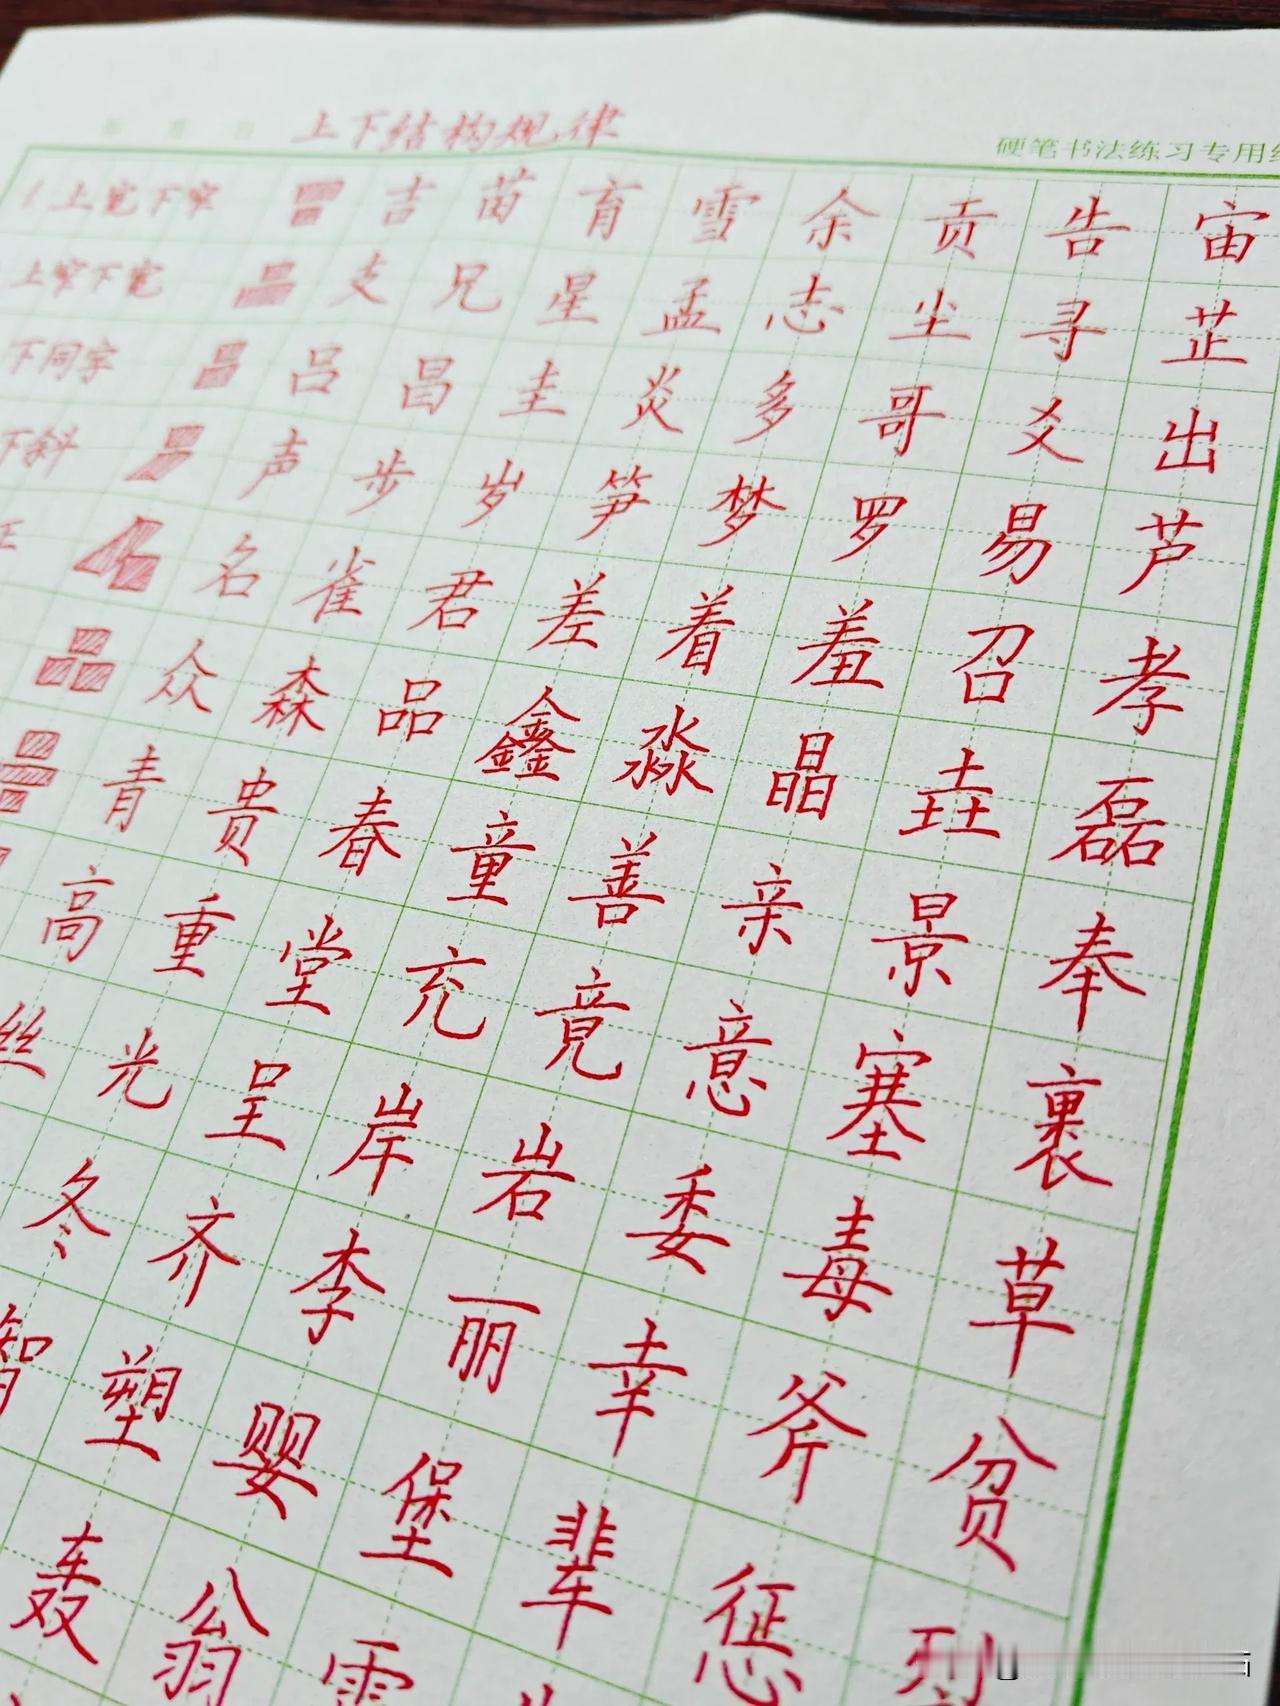 上下结构规律
硬笔书法练习专用
上宽下窄 吉 苗 育 雪 余 贡 告 宙
上窄下宽 支 兄 星 孟 志 尘 寻 芷
下同字 吕 昌 圭 炎 多 哥 爻 出
下斜 声 步 岁 笋 梦 罗 易 芦
名 雀 君 差 着 羞 召 孝
众 森 品 鑫 淼 晶 垚 磊
青 贵 春 童 善 亲 景 奉
高 重 堂 充 竟 意 塞 裹
丝 光 呈 岸 岩 委 毒 草
冬 齐 李 丽 幸 斧 贫
智 塑 婴 堡 辈 惩
轰 翁